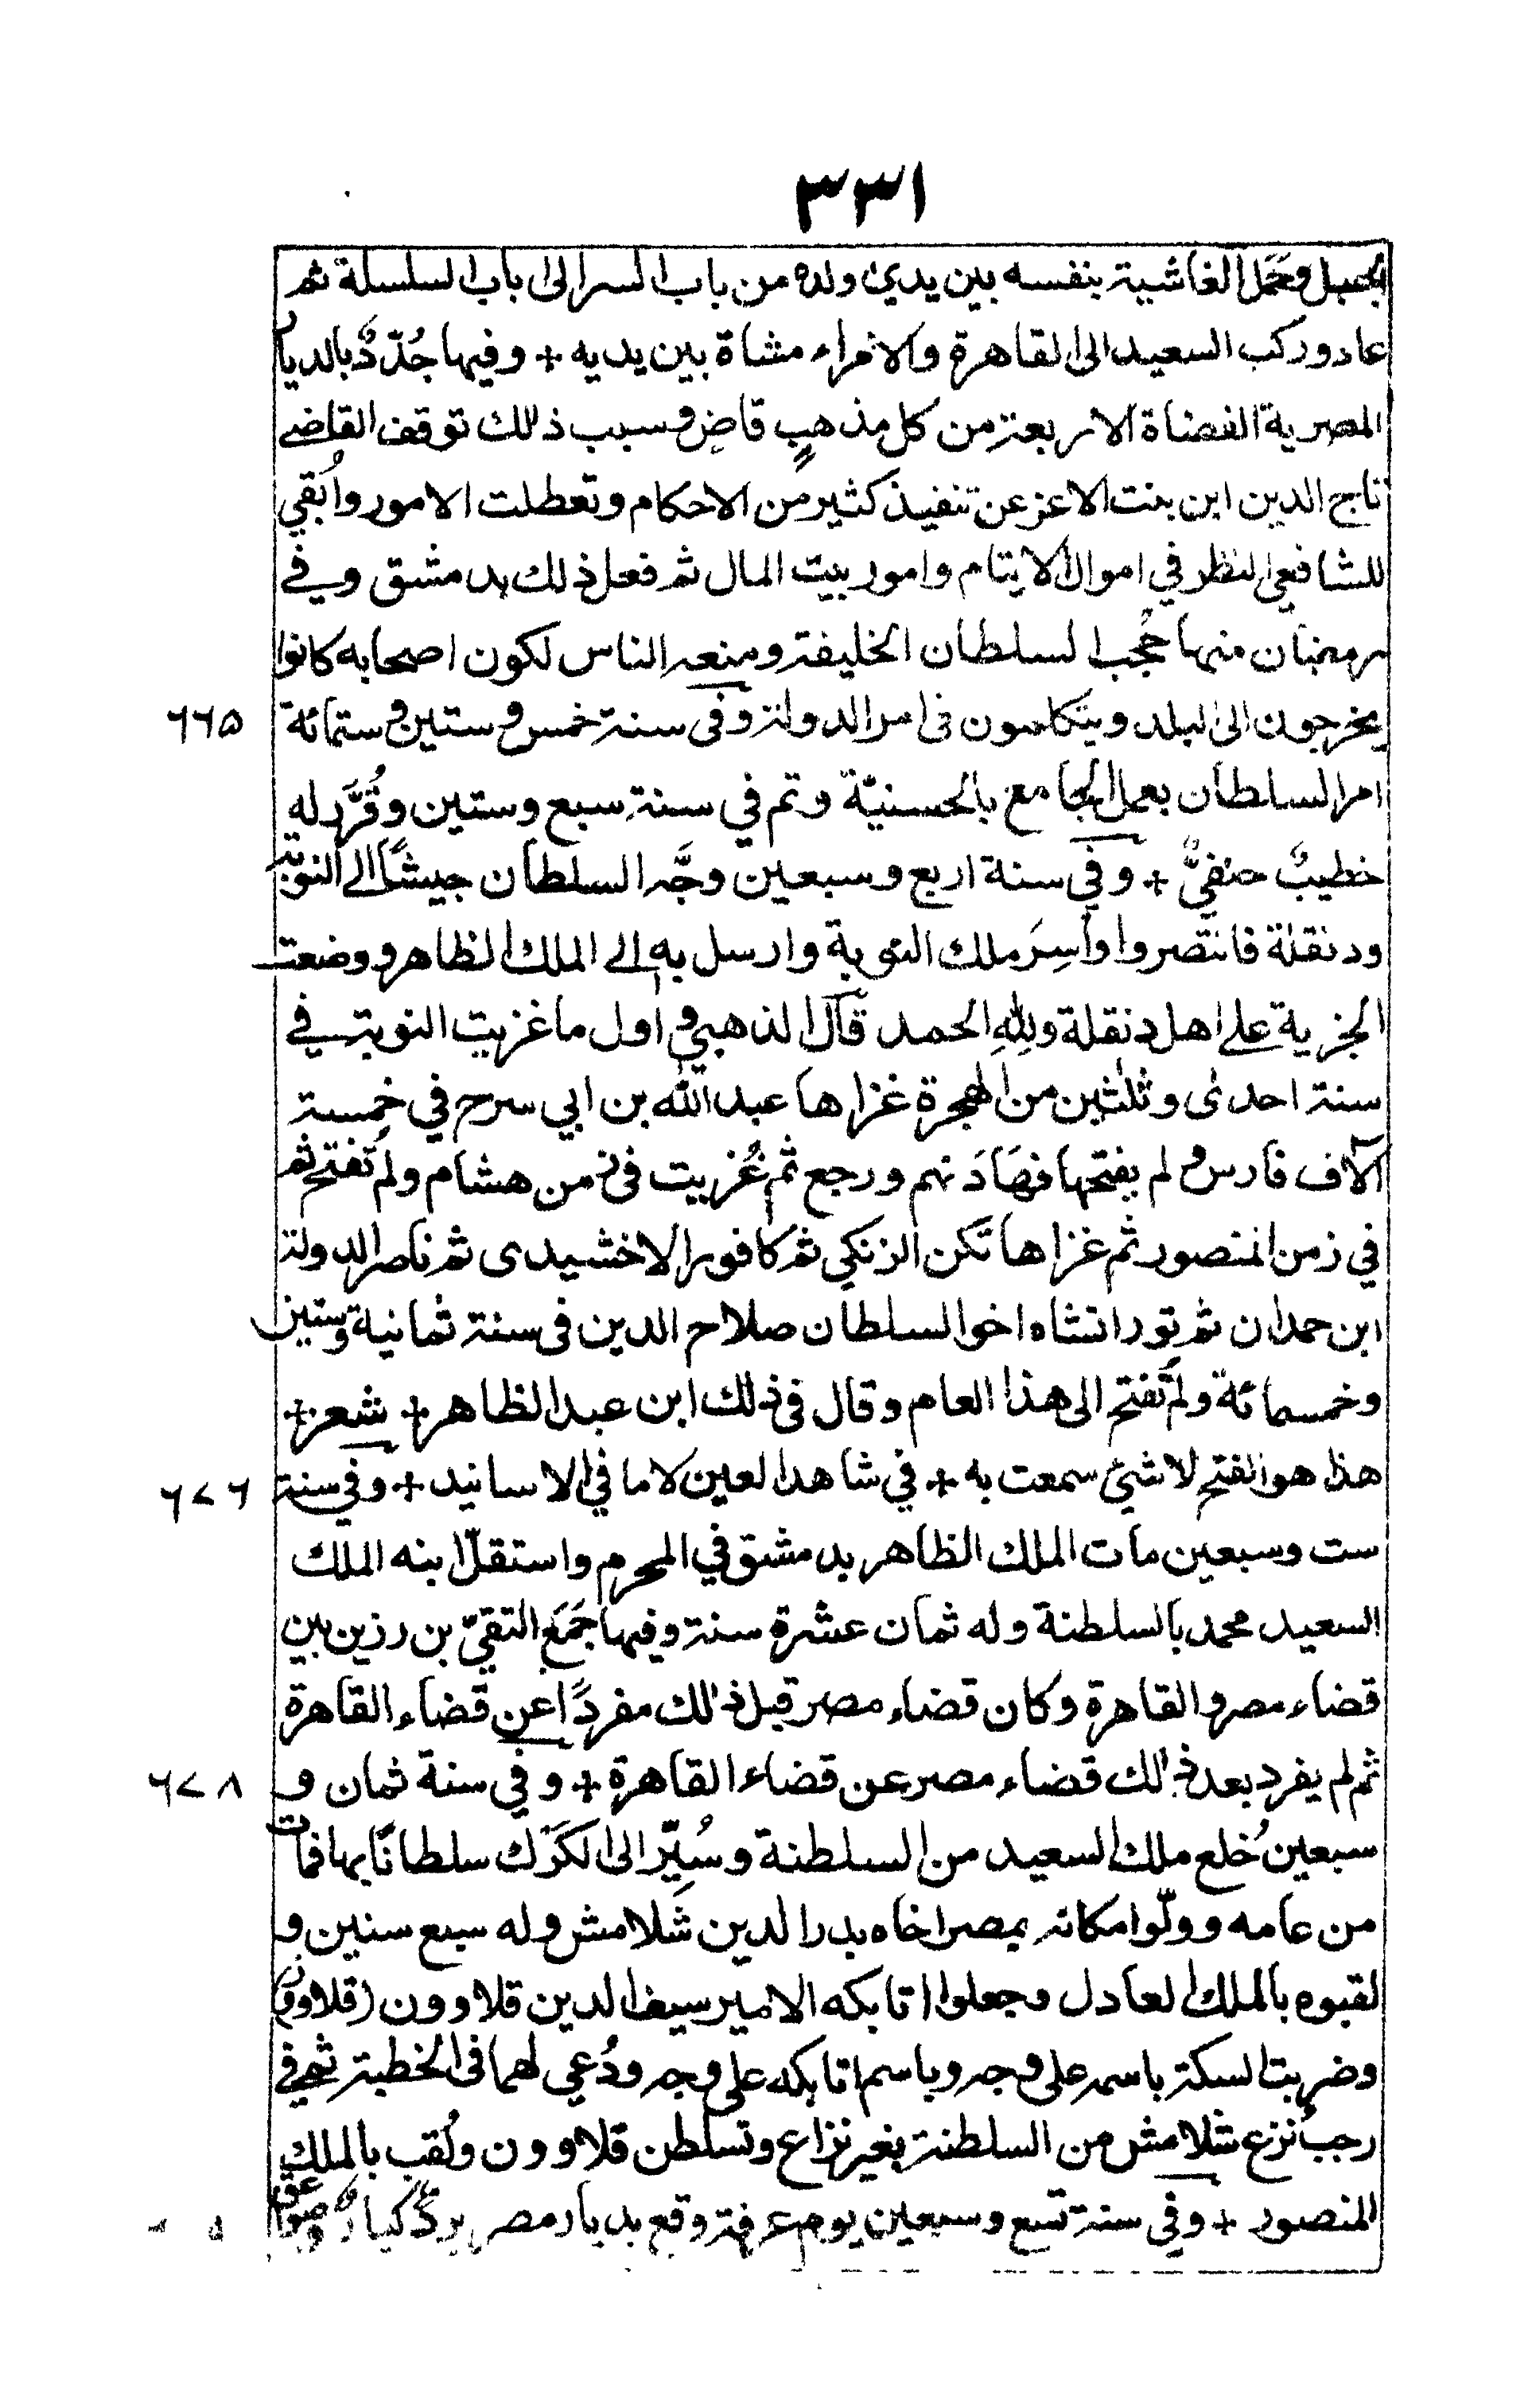 ٣٣١
الجبل وحَمَل الغاشية بنفسه بين يدي ولده من باب السر الى باب السلسلة ثم
عاد وركب السعيد الى القاهرة والامراء مشاة بين يديه + وفيها جُدّدٌ بالديار
المصرية القضاة الاربعة من كل مذهبٍ قاضٍ وسبب ذلك توقف القاضي
تاج الدين ابن بنت الاعز عن تنفيذ كثير من الاحكام وتعطلت الامور واُبقي
للشافعي النظر في اموال الايتام وامور بيت المال ثم فعل ذلك بدمشق وفي
رمضان منها حُجب السلطان الخليفة ومنعه الناس لكون اصحابه كانوا
يخرجون الى البلد ويتكلمون في امر الدولة وفى سنة خمس وستين وستمائة ٦٦٥
امر السلطان بعمل الجامع بالحسنيّة وتم في سنة سبع وستين وقُرَّر له
خطيبٌ حنفيٌّ + وفي سنة اربع وسبعين وجَّه السلطان جيشًا الى النوبة
ودنقلة فانتصروا واُسِرَ ملك النوبة وارسل به الى الملك الظاهر ووضعت
الجزية على اهل دنقلة وللهِ الحمد قال الذهبي واول ما غزيت النوبة في
سنة احدى وثلثين من الهجرة غزاها عبد الله بن ابي سرح في خمسة
آلاف فارس ولم يفتحها فهَادَنهم ورجع ثم غُزيت فى زمن هشام ولم تُفتح ثم
في زمن المنصور ثم غزاها تكن الزنكي ثم كافور الاخشيدى ثم ناصر الدولة
ابن حمدان ثم تورانشاه اخو السلطان صلاح الدين فى سنة ثمانية وستين
وخمسمائة ولم تُفتح الى هذا العام وقال فى ذلك ابن عبد الظاهر + شعر +
هذا هو الفتح لا شئ سمعت به + في شاهد العين لا ما في الاسانيد + وفي سنة ٦٧٦
ست وسبعين مات الملك الظاهر بدمشق في المحرم واستقلّ ابنه الملك
السعيد محمد بالسلطنة وله ثمان عشرة سنة وفيها جَمَعَ التقيّ بن رزين بين
قضاء مصر والقاهرة وكان قضاء مصر قبل ذلك مفردًا عن قضاء القاهرة
ثم لم يفرد بعد ذلك قضاء مصر عن قضاء القاهرة + وفي سنة ثمان و ٦٧٨
سبعين خُلع ملك السعيد من السلطنة وسُيِّر الى الكَرَك سلطانًا بها فمات
من عامه وولّوا مكانه بمصر اخاه بدر الدين شلامش وله سبع سنين و
لقبوه بالملك العادل وجعلوا اتابكه الامير سيف الدين قلاوون (قلاوون)
وضربت السكة باسمه على وجه وباسم اتابكه على وجه ودُعي لهما فى الخطبة ثم في
رجب نُزع شلامش من السلطنة بغير نزاع وتسلطن قلاوون ولُقب بالملك
المنصور + وفي سنة تسع وسبعين يوم عرفة وقع بديار مصر بردٌ كبارٌ وصواعق